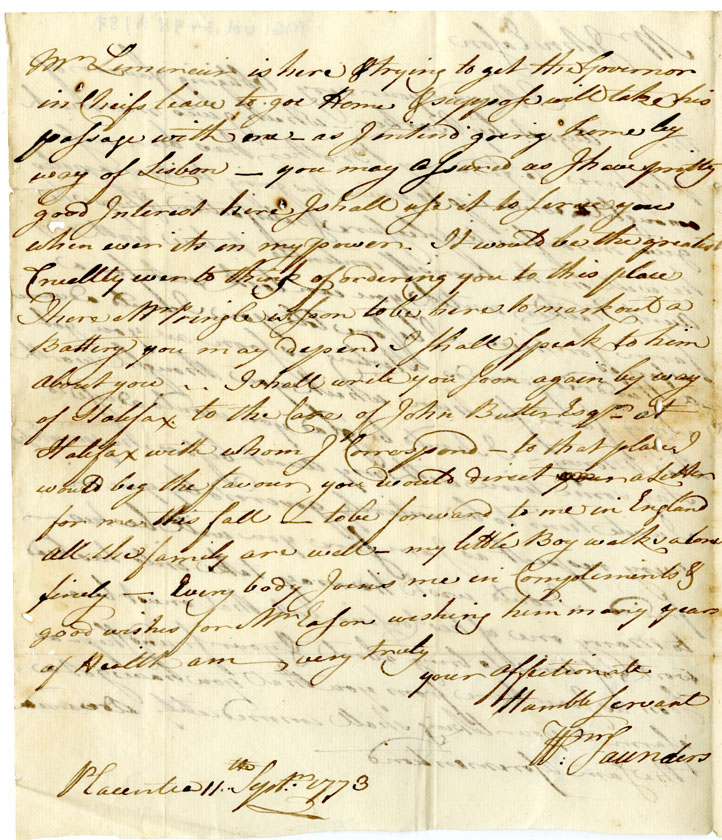 Mr Limireur is here & trying to get the Governor
in Cheifs leave to goe Home & suppose will take his
passage with me - as I intend going home by
way of Lisbon - you may assured as I have pritty
good Interest here I shall use it to serve you
when ever its in my power. It would be the greatest
Cruellty ever to think of ordering you to this place
There Mr Pringle is soon to be here to mark out a
Battery you may depend I shall speak to him
about you .. I shall write you soon again by way
of Halifax to the Care of John Butler Esqr at
Halifax with whom I Correspond - to that place I
would beg the favour you would direct a Letter
for me this fall - to be forward to me in England
all the family are well - my little Boy walks alone
finely - Every body Joins me in Compliments &
good wishes for Mr Eason wishing him many years
of Health am very truly
your affectionate
Humble Servant
Wm Saunders
Placentia 11th Septr 1773